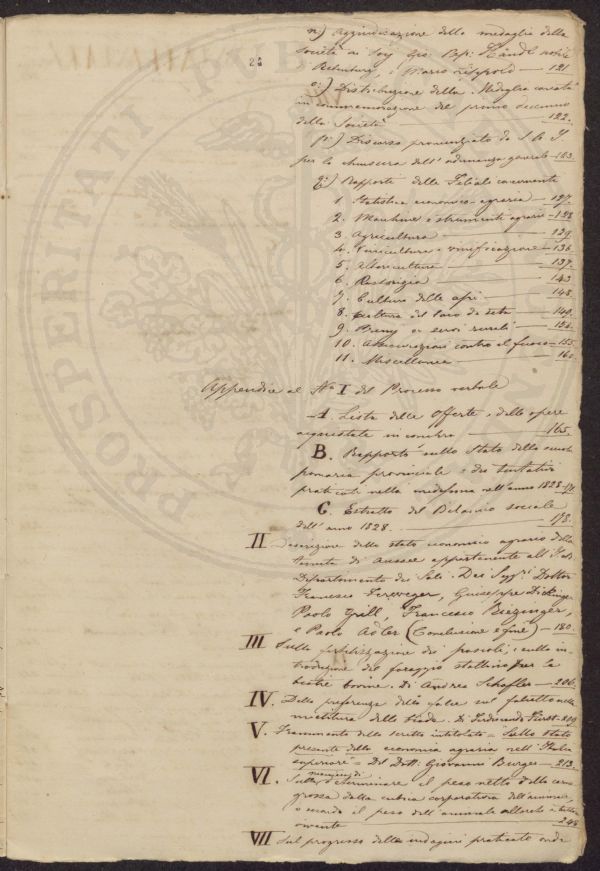 24
n.) Aggiudicazione delle medaglie della
Società ai Sigg. Gio. Händl
e Marco — 121
o.) Distribuzione della Medaglia coniata
in commemorazione del primo decennio
della Società 122.
p.) Discorso pronunziato da S. A. I.
per la chiusura dell' adunanza generale 123
q.) Rapporti delle Filiali concernenti
1. Statistica economico-agraria — 127.
2. Macchine e strumenti agrari — 128
3. Agricoltura — 129.
4. Viticultura e vinificazione — 136.
5. Alboricultura — 137.
6. Pastorizia — 143
7. Cultura delle api — 148.
8. Cultura del baco da seta — 149.
9. ed rurali — 152.
10. Assicurazioni contro il fuoco — 155
11. Miscellanea — 160.
Appendice al No. I del Processo verbale
A. Lista delle offerte, delle opere
acquistate in 165.
B. Rapporto sullo Stato della
pomaria provinciale e dei tentativi
praticati nella medesima nell'anno 1828
C. Estratto del Bilancio sociale
dell'anno 1828. 178.
II Descrizione dello stato economico agrario della
tenuta di Aussee appartenente all' I. R.
Dipartimento dei Sali. Dei Sigg.ri Dottor
Francesco Giuseppe
Paolo Grill, Francesco
e Paolo Adler (Conclusione e fine) — 180.
III Sulla fertilizzazione dei pascoli, e sulla in-
troduzione del foraggio stallino per le
bestie bovine. Di Andrea Schefler — 206.
IV. Della preferenza della falce sul falcetto nella
mietitura delle biade. Di Ferdinando Fürst 209
V. Frammento dello scritto intitolato = Sullo Stato
presente della economia agraria nell' Italia
superiore = Del Dott. Giovanni Burger — 213.
VI. Sulla maniera di determinare il peso netto della carne
grossa dalla cubica corporatura dell'animale,
o secondo il peso dell'animale
vivente 248
VII Sul progresso delle indagini praticate onde